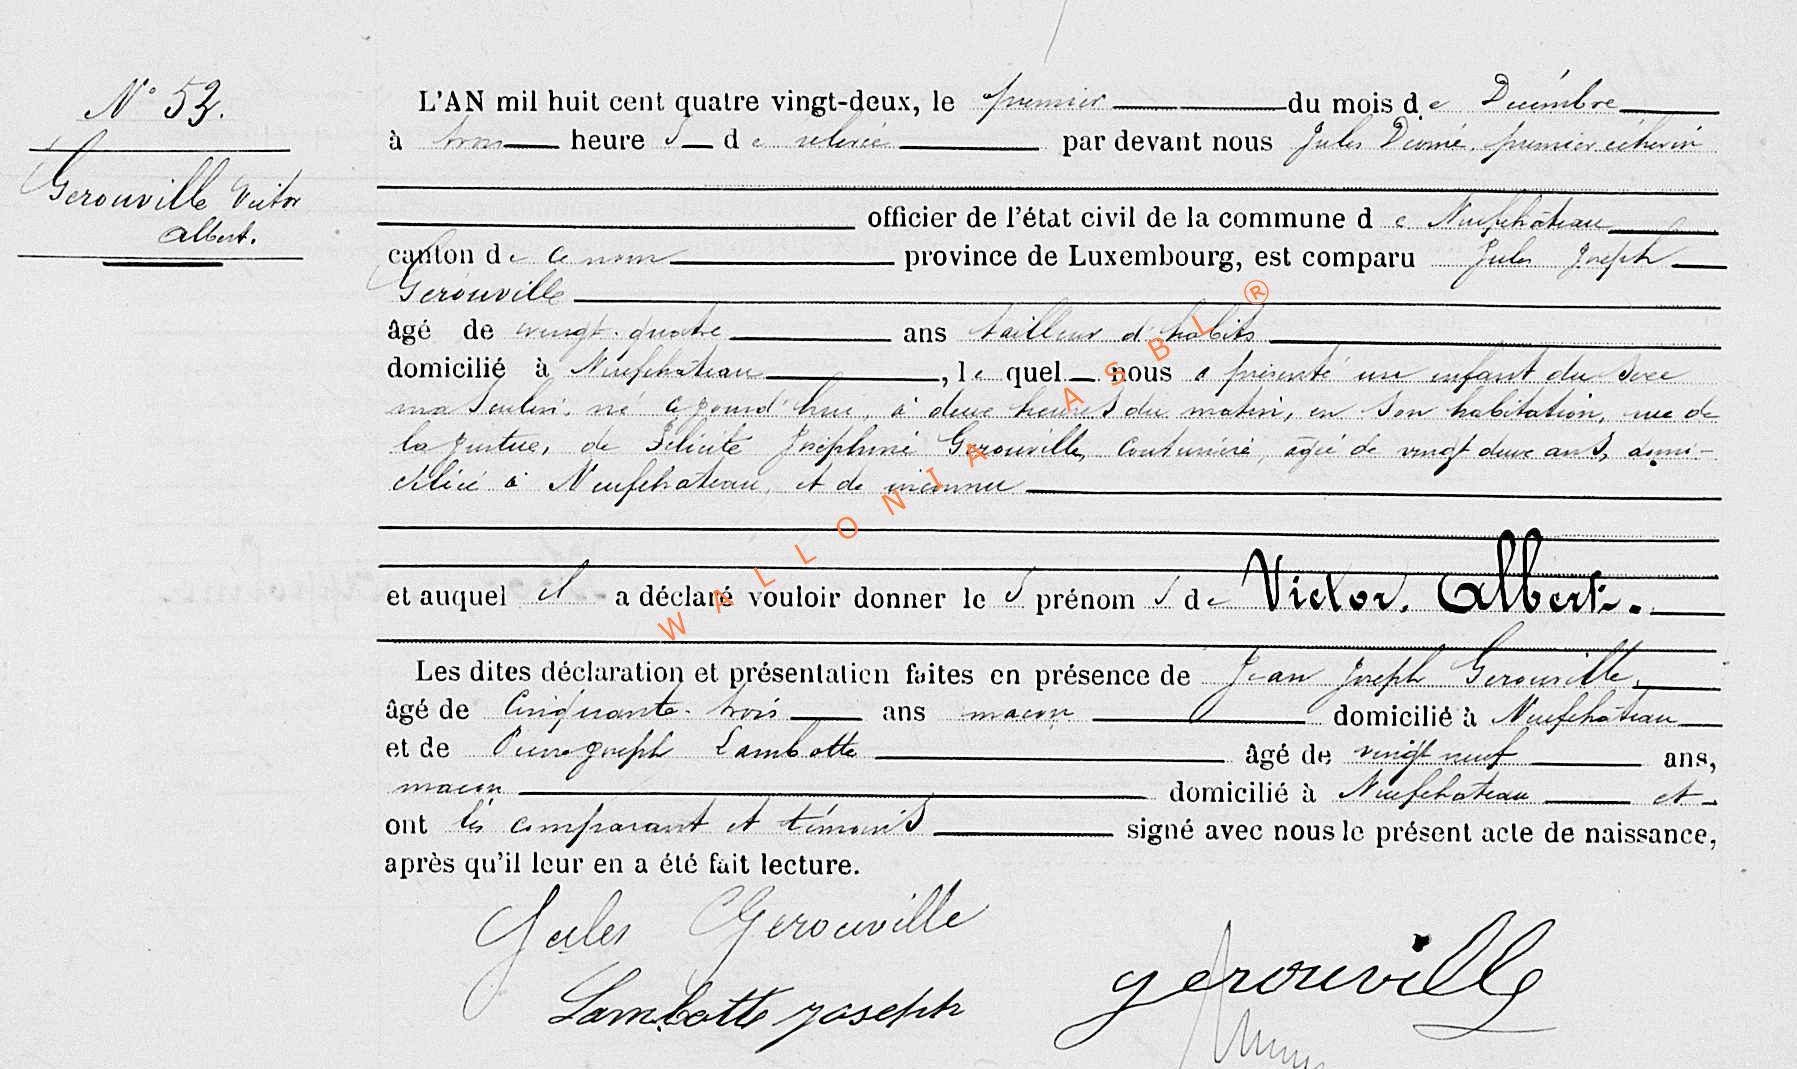 N° 53.
Gerouville Victor
Albert.
L'AN mil huit cent quatre vingt-deux, le premier du mois de Décembre
à trois heures de relevée par devant nous Jules premier échevin
officier de l'état civil de la commune de Neufchâteau
canton de ce nom province de Luxembourg, est comparu Jules Joseph
Gerouville
âgé de vingt-quatre ans tailleur d'habits
domicilié à Neufchâteau, lequel nous a présenté un enfant du sexe
masculin, né ce jourd'hui, à deux heures du matin, en son habitation, rue de
la Justice, de Félicité Joséphine Gerouville, couturière, agée de vingt deux ans, domi-
ciliée à Neufchateau, et de inconnu
et auquel il a déclaré vouloir donner les prénoms de Victor. Albert.
Les dites déclaration et présentation faites en présence de Jean Joseph Gerouville,
âgé de cinquante-trois ans maçon domicilié à Neufchâteau
et de Pierre Joseph Lambotte âgé de vingt neuf ans,
maçon domicilié à Neufchateau et
ont les comparant et témoins signé avec nous le présent acte de naissance,
après qu'il leur en a été fait lecture.
Jules Gerouville
gerouville
Lambotte joseph
WALLONIA ASBL ®